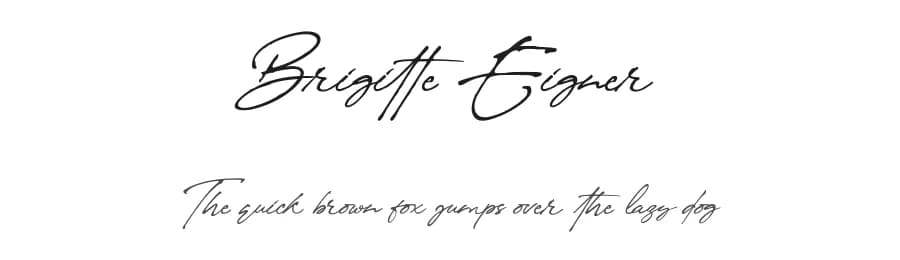 Brigitte Eigner
The quick brown fox jumps over the lazy dog